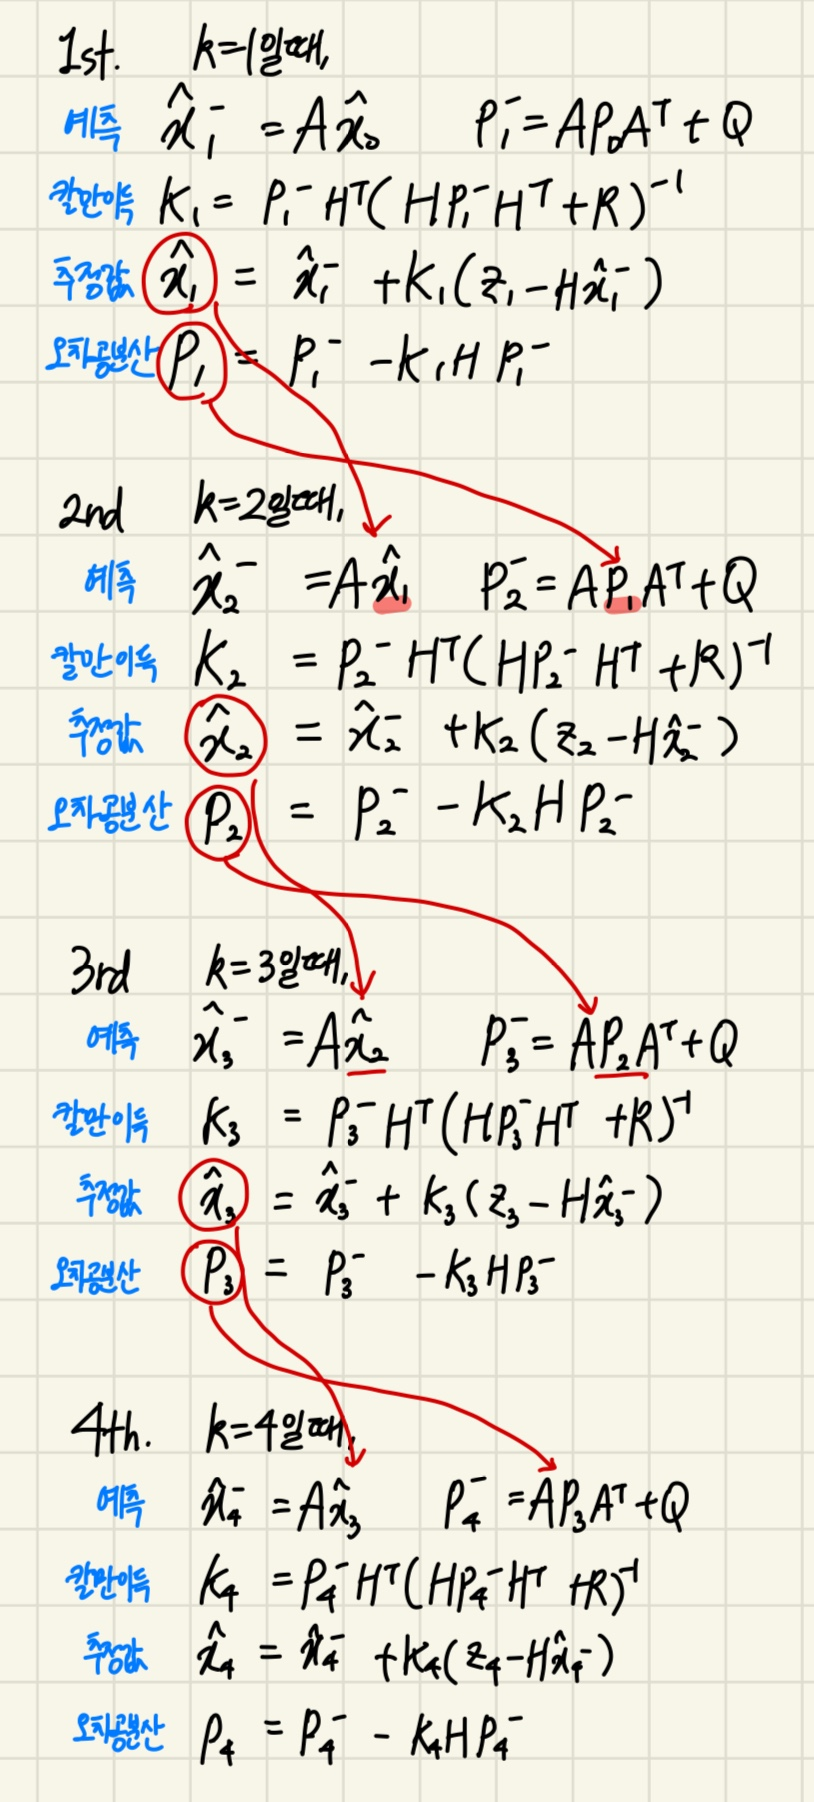 1st. k=1일때,
예측 x̂₁⁻ = Ax̂₀ P₁⁻ = AP₀Aᵀ + Q
칼만이득 K₁ = P₁⁻Hᵀ(HP₁⁻Hᵀ + R)⁻¹
추정값 x̂₁ = x̂₁⁻ + K₁(z₁ - Hx̂₁⁻)
오차공분산 P₁ = P₁⁻ - K₁HP₁⁻
2nd k=2일때,
예측 x̂₂⁻ = Ax̂₁ P₂⁻ = AP₁Aᵀ + Q
칼만이득 K₂ = P₂⁻Hᵀ(HP₂⁻Hᵀ + R)⁻¹
추정값 x̂₂ = x̂₂⁻ + K₂(z₂ - Hx̂₂⁻)
오차공분산 P₂ = P₂⁻ - K₂HP₂⁻
3rd k=3일때,
예측 x̂₃⁻ = Ax̂₂ P₃⁻ = AP₂Aᵀ + Q
칼만이득 K₃ = P₃⁻Hᵀ(HP₃⁻Hᵀ + R)⁻¹
추정값 x̂₃ = x̂₃⁻ + K₃(z₃ - Hx̂₃⁻)
오차공분산 P₃ = P₃⁻ - K₃HP₃⁻
4th. k=4일때,
예측 x̂₄⁻ = Ax̂₃ P₄⁻ = AP₃Aᵀ + Q
칼만이득 K₄ = P₄⁻Hᵀ(HP₄⁻Hᵀ + R)⁻¹
추정값 x̂₄ = x̂₄⁻ + K₄(z₄ - Hx̂₄⁻)
오차공분산 P₄ = P₄⁻ - K₄HP₄⁻